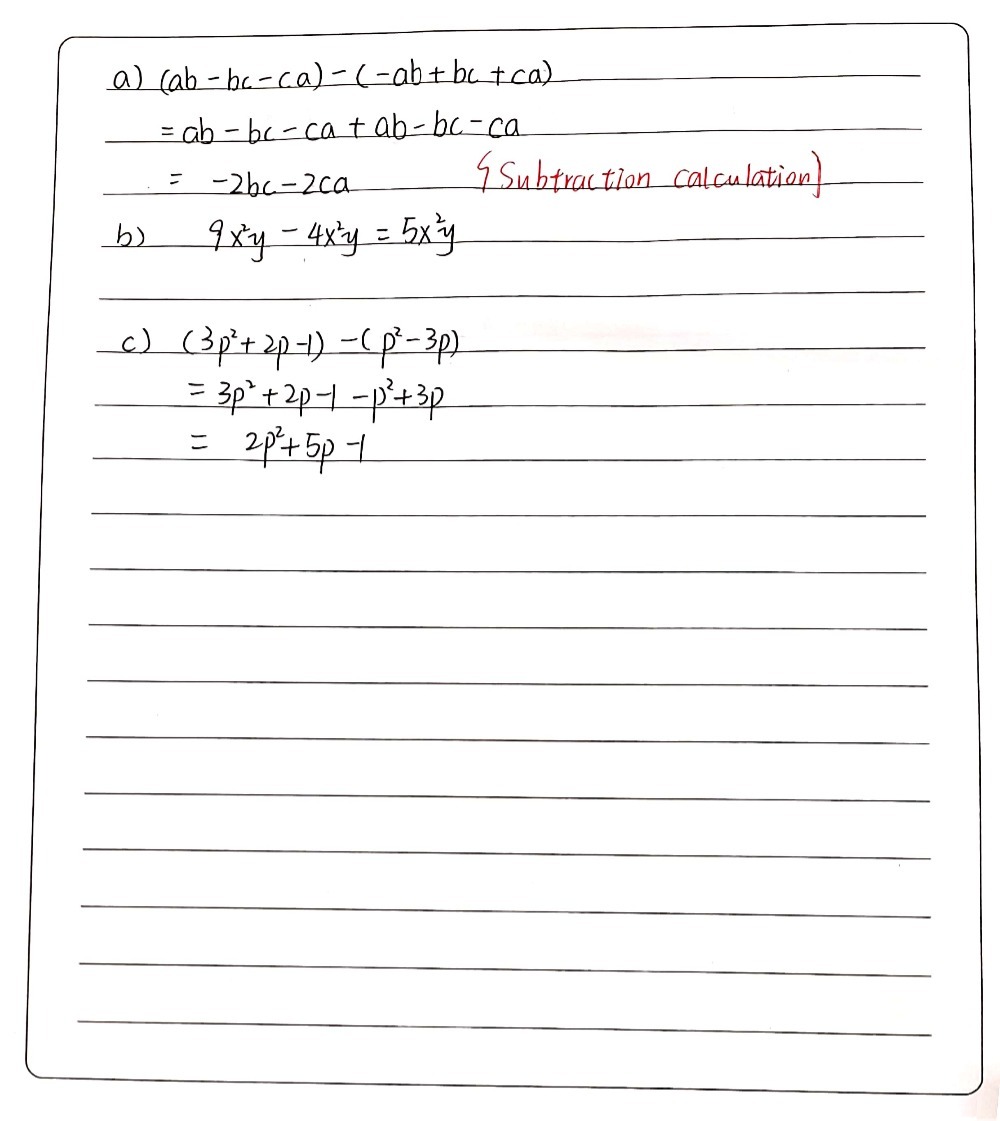 a) (ab - bc - ca) - (-ab + bc + ca)
= ab - bc - ca + ab - bc - ca
= -2bc - 2ca
{Subtraction calculation]
b) 9x²y - 4x²y = 5x²y
c) (3p² + 2p - 1) - (p² - 3p)
= 3p² + 2p - 1 - p² + 3p
= 2p² + 5p - 1